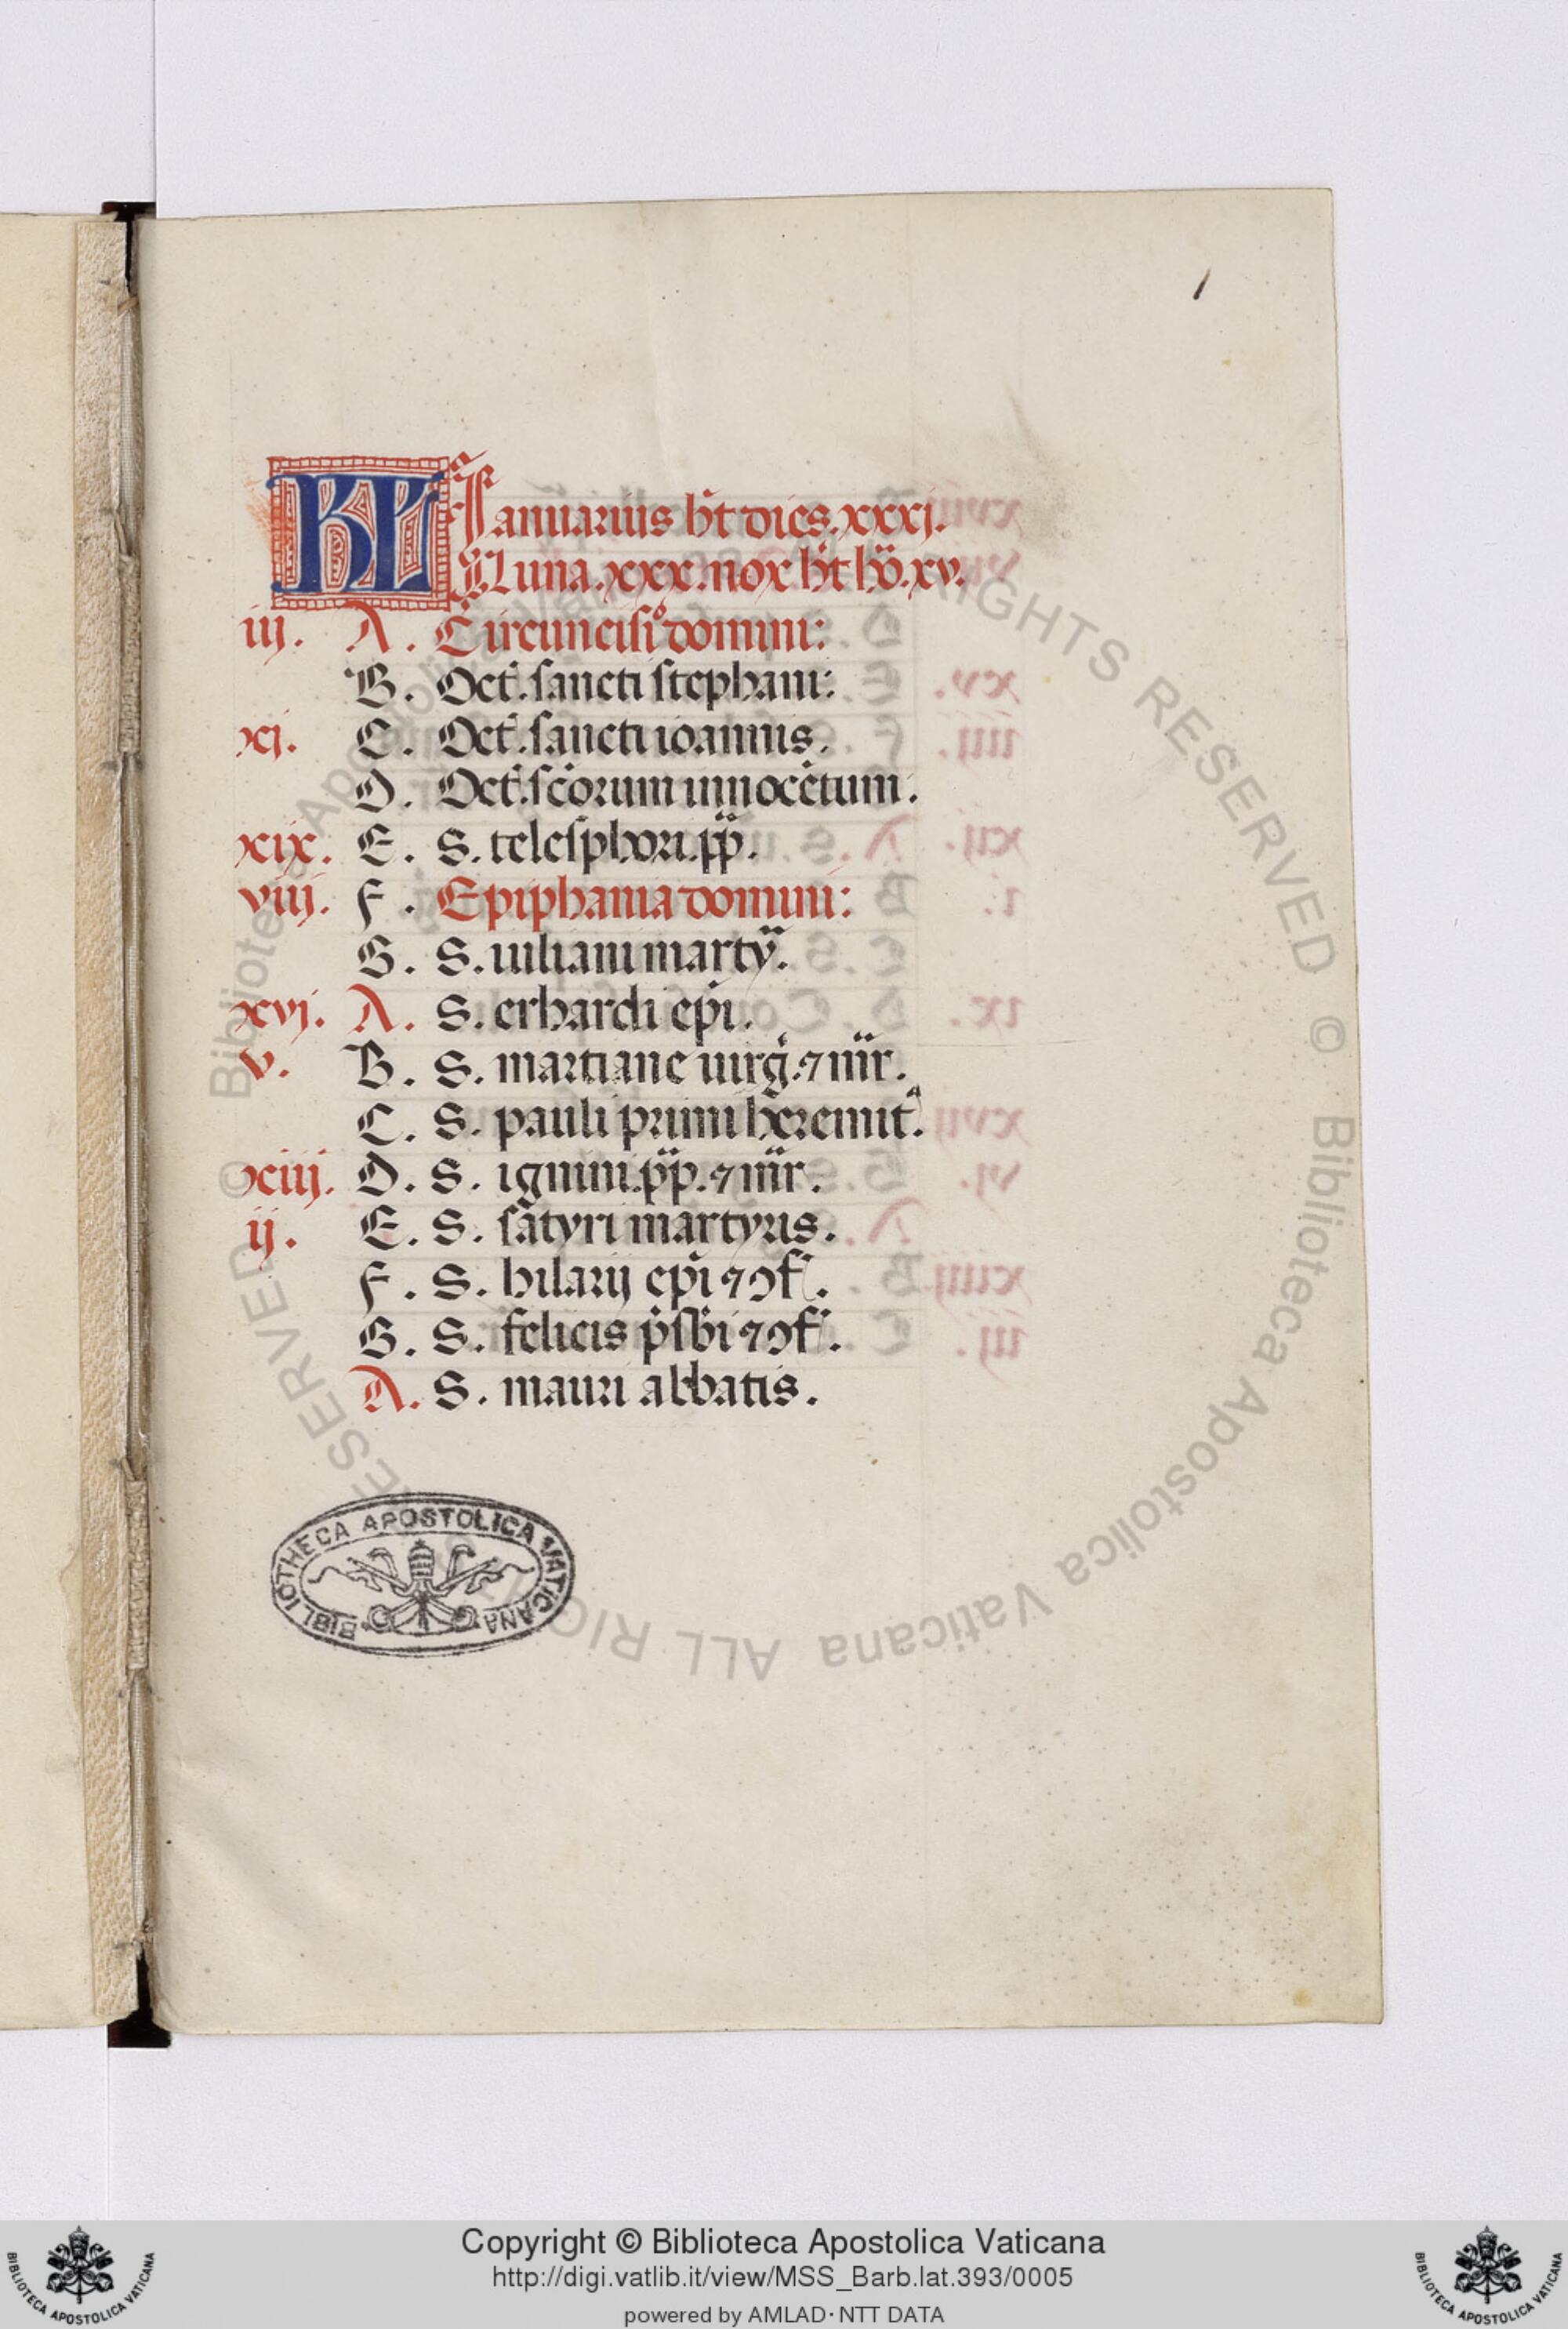 1
KL Ianuarius ħt dies. xxxj.
Luna. xxx. nox ħt ho. xv.
iij. A. Circuncisio domini:
B. Oct. sancti stephani:
xj. C. Oct. sancti ioannis.
D. Oct. scorum innocētum.
xix. E. S. telesphori. pp.
viij. F. Epiphania domini:
G. S. iuliani marty.
xvj. A. S. erhardi epi.
v. B. S. martiane uirg. ⁊ mr.
C. S. pauli primi heremit.
xiij. D. S. iginii. pp. ⁊ mr.
ij. E. S. satyri martyris.
F. S. hilarij epi ⁊ ꝯf.
G. S. felicis psbi ⁊ ꝯf.
A. S. mauri abbatis.
BIBLIOTHECA APOSTOLICA VATICANA
© Biblioteca Apostolica Vaticana ALL RIGHTS RESERVED
© Biblioteca Apostolica Vaticana ALL RIGHTS RESERVED
Copyright © Biblioteca Apostolica Vaticana
http://digi.vatlib.it/view/MSS_Barb.lat.393/0005
powered by AMLAD·NTT DATA
BIBLIOTECA APOSTOLICA VATICANA
BIBLIOTECA APOSTOLICA VATICANA